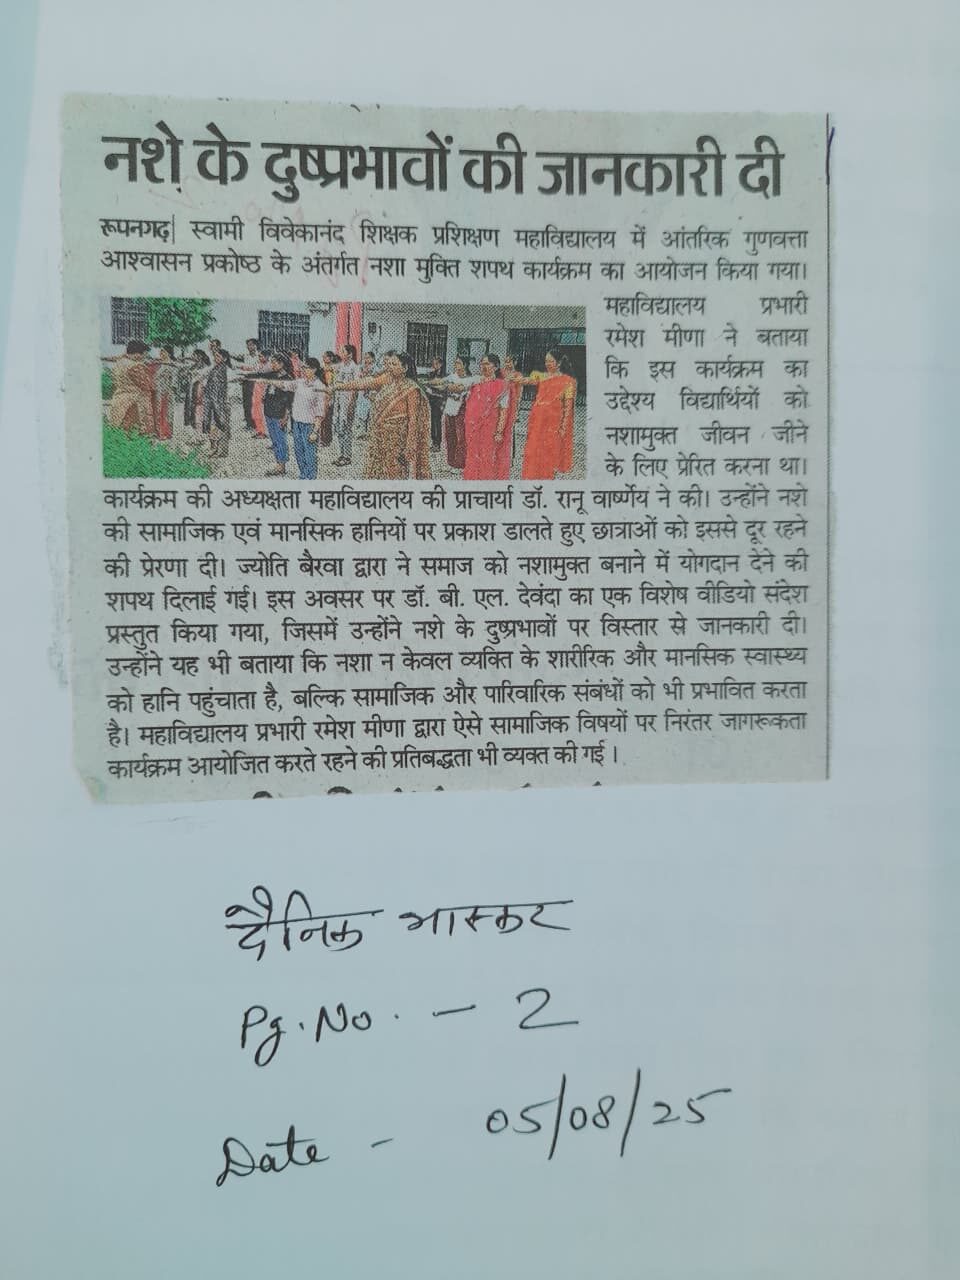 नशे के दुष्प्रभावों की जानकारी दी
रूपनगढ़| स्वामी विवेकानंद शिक्षक प्रशिक्षण महाविद्यालय में आंतरिक गुणवत्ता
आश्वासन प्रकोष्ठ के अंतर्गत नशा मुक्ति शपथ कार्यक्रम का आयोजन किया गया।
महाविद्यालय प्रभारी
रमेश मीणा ने बताया
कि इस कार्यक्रम का
उद्देश्य विद्यार्थियों को
नशामुक्त जीवन जीने
के लिए प्रेरित करना था।
कार्यक्रम की अध्यक्षता महाविद्यालय की प्राचार्या डॉ. रानू वार्ष्णेय ने की। उन्होंने नशे
की सामाजिक एवं मानसिक हानियों पर प्रकाश डालते हुए छात्राओं को इससे दूर रहने
की प्रेरणा दी। ज्योति बैरवा द्वारा ने समाज को नशामुक्त बनाने में योगदान देने की
शपथ दिलाई गई। इस अवसर पर डॉ. बी. एल. देवंदा का एक विशेष वीडियो संदेश
प्रस्तुत किया गया, जिसमें उन्होंने नशे के दुष्प्रभावों पर विस्तार से जानकारी दी।
उन्होंने यह भी बताया कि नशा न केवल व्यक्ति के शारीरिक और मानसिक स्वास्थ्य
को हानि पहुंचाता है, बल्कि सामाजिक और पारिवारिक संबंधों को भी प्रभावित करता
है। महाविद्यालय प्रभारी रमेश मीणा द्वारा ऐसे सामाजिक विषयों पर निरंतर जागरूकता
कार्यक्रम आयोजित करते रहने की प्रतिबद्धता भी व्यक्त की गई ।
दैनिक भास्कर
Pg. No. - 2
Date - 05/08/25